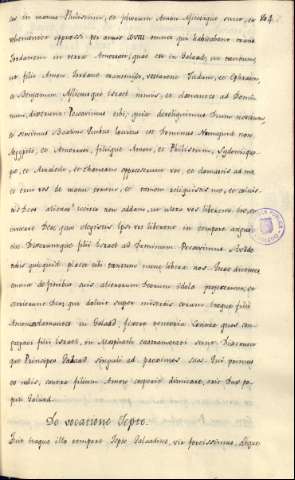 eos in manus Philistiim, et filiorum Amon, afflictique sunt, et
vehementer oppressi per annos
Jordanem in terra Amorrhaei, quae est in Galaad, in tantum,
ut filii Amon, Jordane transmisso, vastarent Judam, et Ephraim,
et Benjamin, afflictusque Israel nimis, et clamantes ad Domi-
num, dixerunt Peccavimus tibi, quia dereliquimus Deum nostrum
et servivimus Baalim Quibus locutus est Dominus Numquid non
Egyptii, et Amorrhaei, filiique Amon, et Philistiim, Sydonii quo-
que, et Amalech, et Chanaam oppresserunt vos, et clamastis ad me
et erui vos de manu eorum, et tamen reliquistis me, et coluis-
tis Deos alienos? idcirco non addam, ut ultra vos liberem: Ite, et
invocate Deos quos elegistis ipsi vos liberent in tempore angus-
tiae. Dixeruntque filii Israel ad Dominum Peccavimus. Redde
nobis quidquid placet tibi tantum nunc libera nos. Quae dicentes
omnia de finibus suis alienorum Deorum idola projecerunt, et
servierunt Deo, qui doluit super miseriis eorum. Itaque filii
Amon conclamantes in Galaad, fixere tentoria Contra quos con-
gregati filii Israel, in Maspha castrametati sunt. Dixerunt-
que Principes Galaad singuli ad proximos suos. Qui primus
ex nobis, contra filios Amon coeperit dimicare, erit Dux po-
puli Galaad.
De vocatione Jepte.
Fuit itaque illo tempore Jepte Galaadites, vir fortissimus,